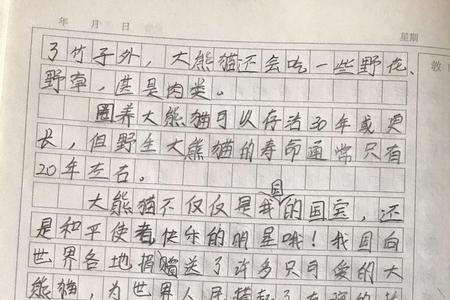 年 月 日 星期
教
了竹子外，大熊猫还会吃一些野花、
野草，甚是肉类。
圈养大熊猫可以存活30年或更
长，但野生大熊猫的寿命通常只有
20年左右。
大熊猫不仅仅是我国的国宝，还
是和平使者快乐的明星哦！我国向
世界各地捐赠送了许多只可爱的大
熊猫，为世界人民搭起了